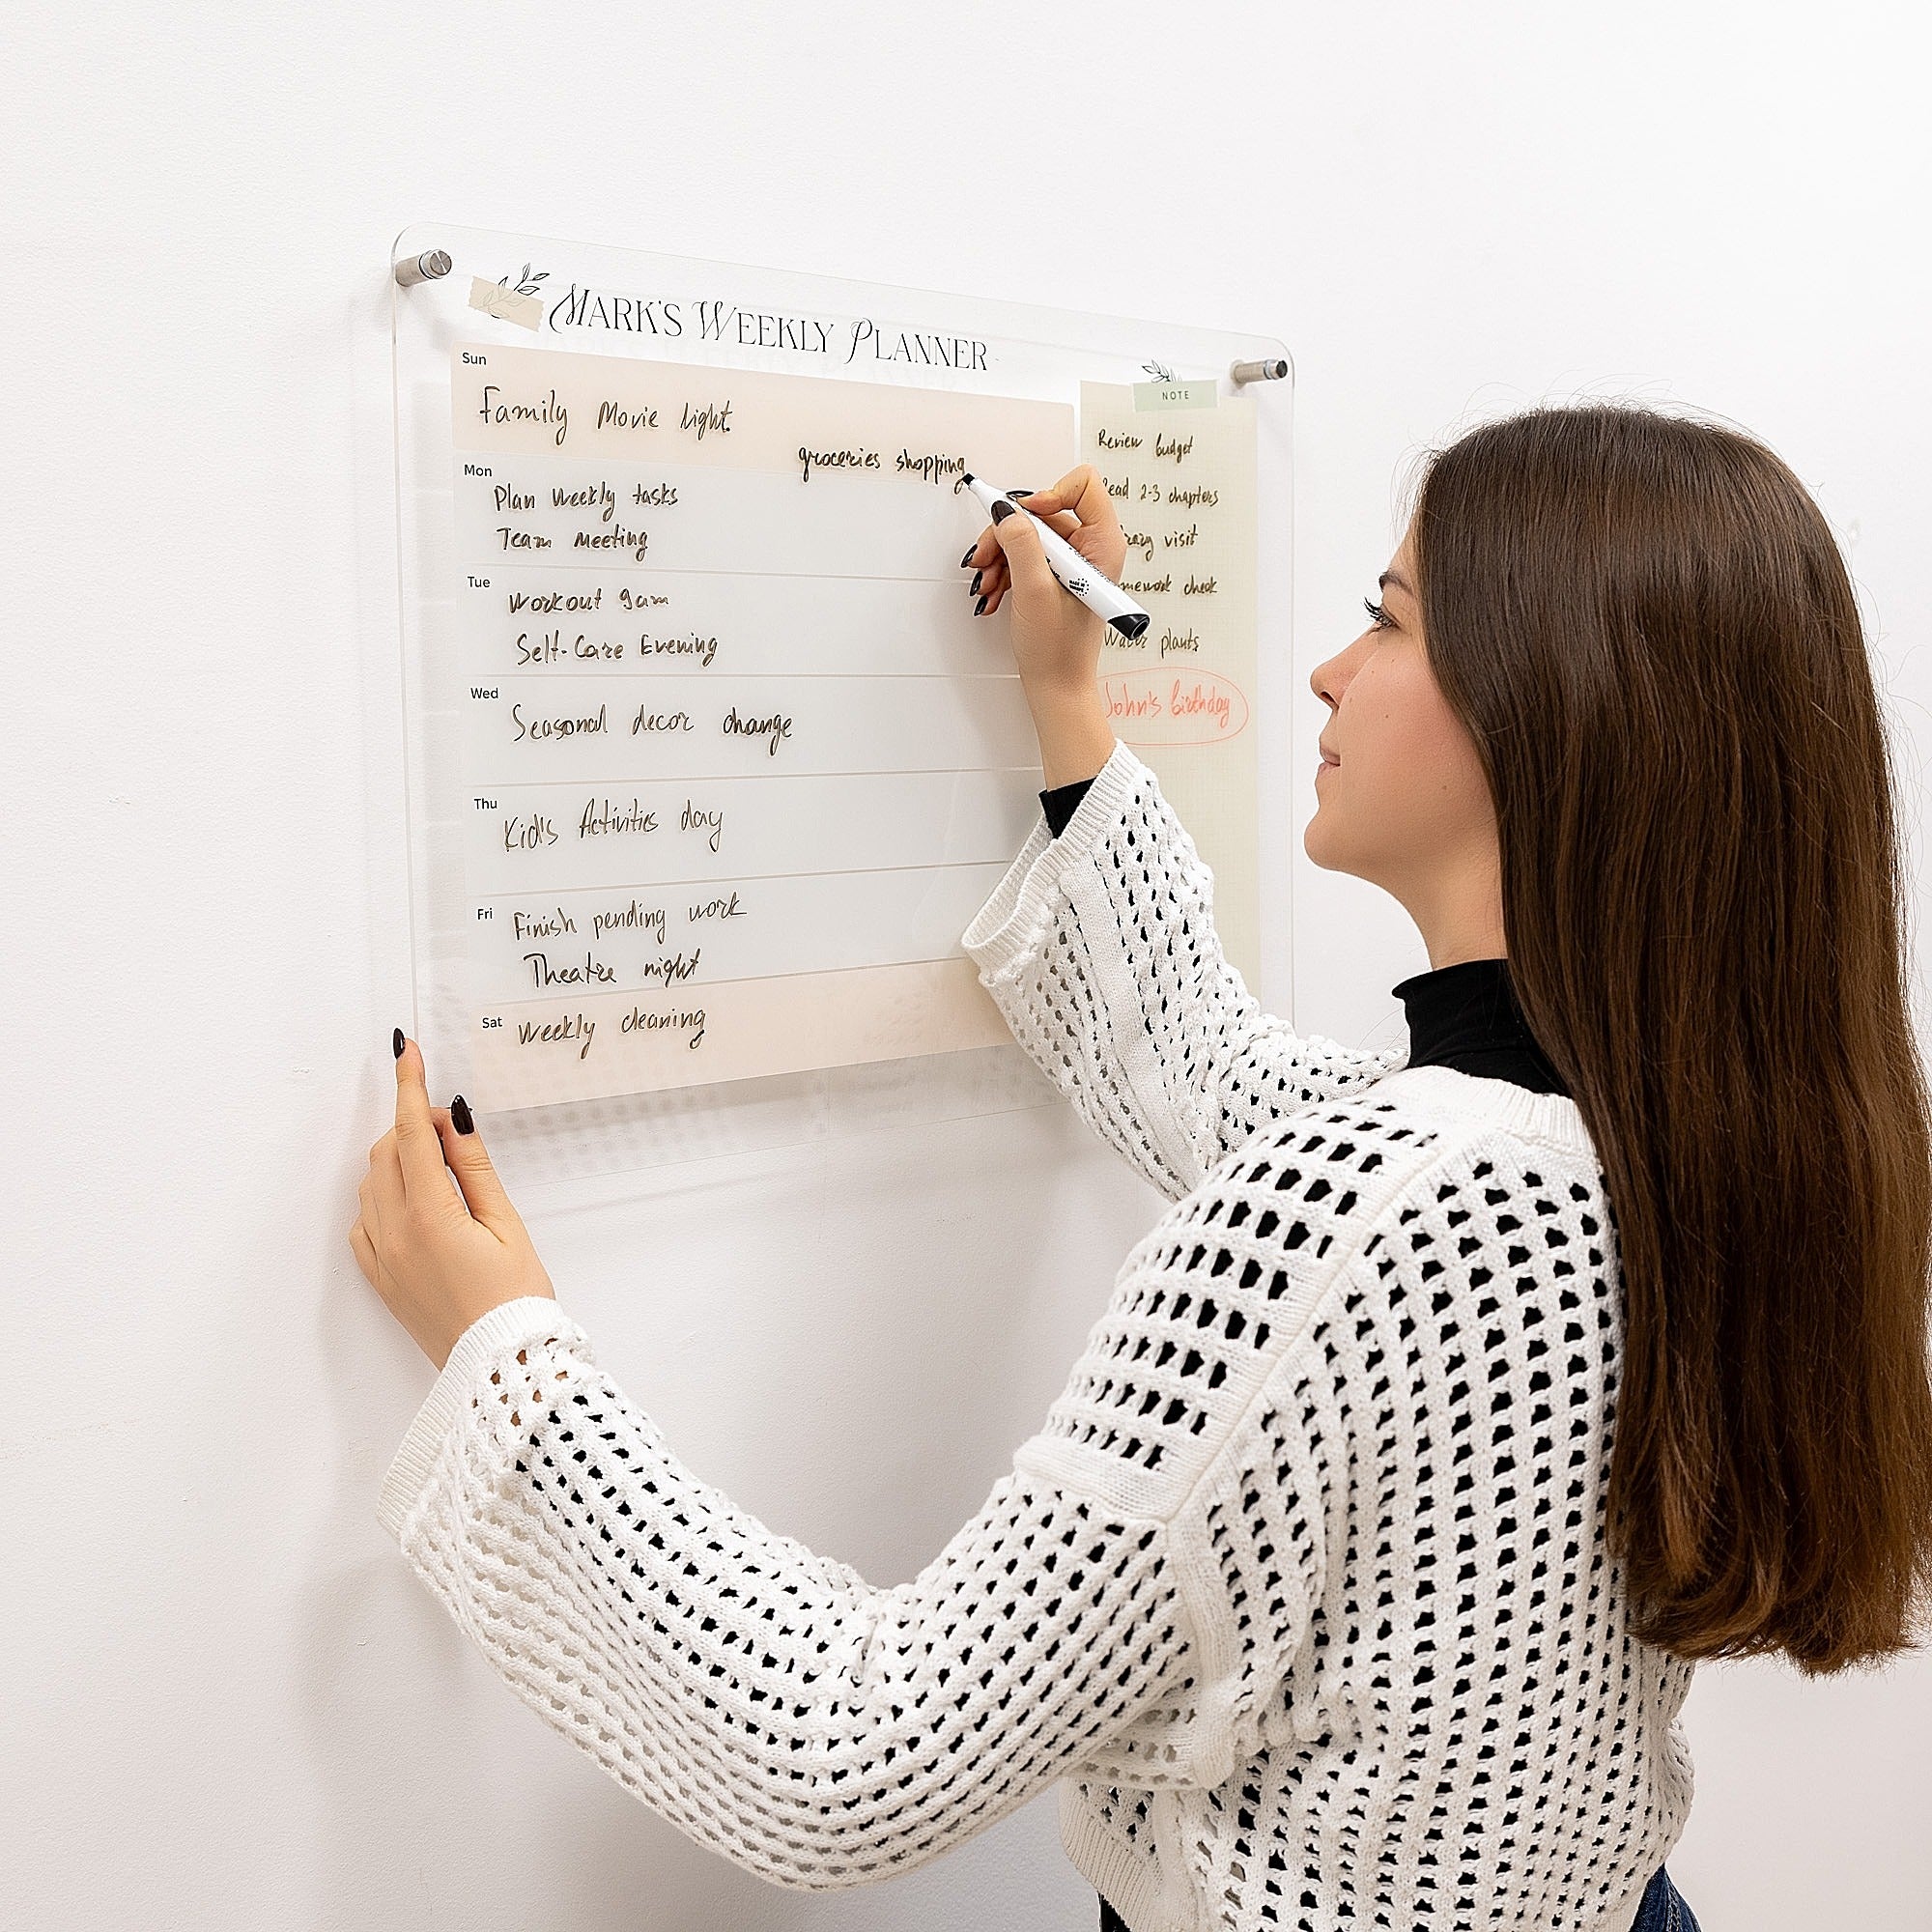 MARK'S WEEKLY PLANNER
Sun
Family Movie light
groceries shopping
Mon
Plan weekly tasks
Team meeting
Tue
Workout 9am
Self-Care Evening
Wed
Seasonal decor change
Thu
Kid's Activities day
Fri
Finish pending work
Theatre night
Sat
Weekly cleaning
NOTE
Review budget
2-3 chapters
visit
check
Water plants
John's birthday